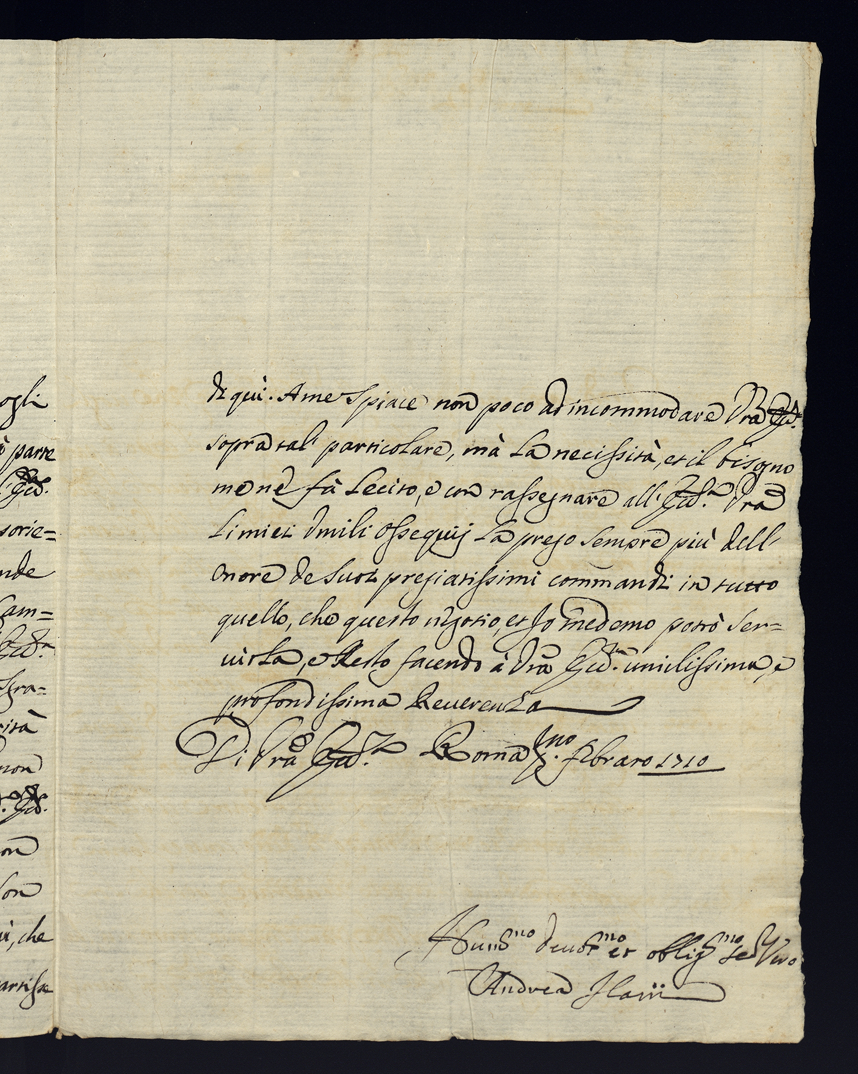 ogli
parte
sorie=
nde
Cam=
sgra=
rità
non
on
son
ui, che
di quì. A me spiace non poco ad incommodare Vrã Ecc.
sopra tal' particolare, mà La necissità, et il bisogno
me nè fà Lecito, e con rassegnare all' Ecc.za Vrã
Li miei Vmili ossequij La prego sempre più dell'
onore de Suoi pregiatissimi commandi in tutto
quello, che questo negotio, et Jo medemo potrò ser=
uirLa, e Resto facendo à Vrã Ecc.za umilissima, e
profondissima Reuerenza
Di Vrã Ecc.za Roma Pmo febraro 1710
Humssmo deuotmo et obligmo Sed Vero
Andrea Ilarii